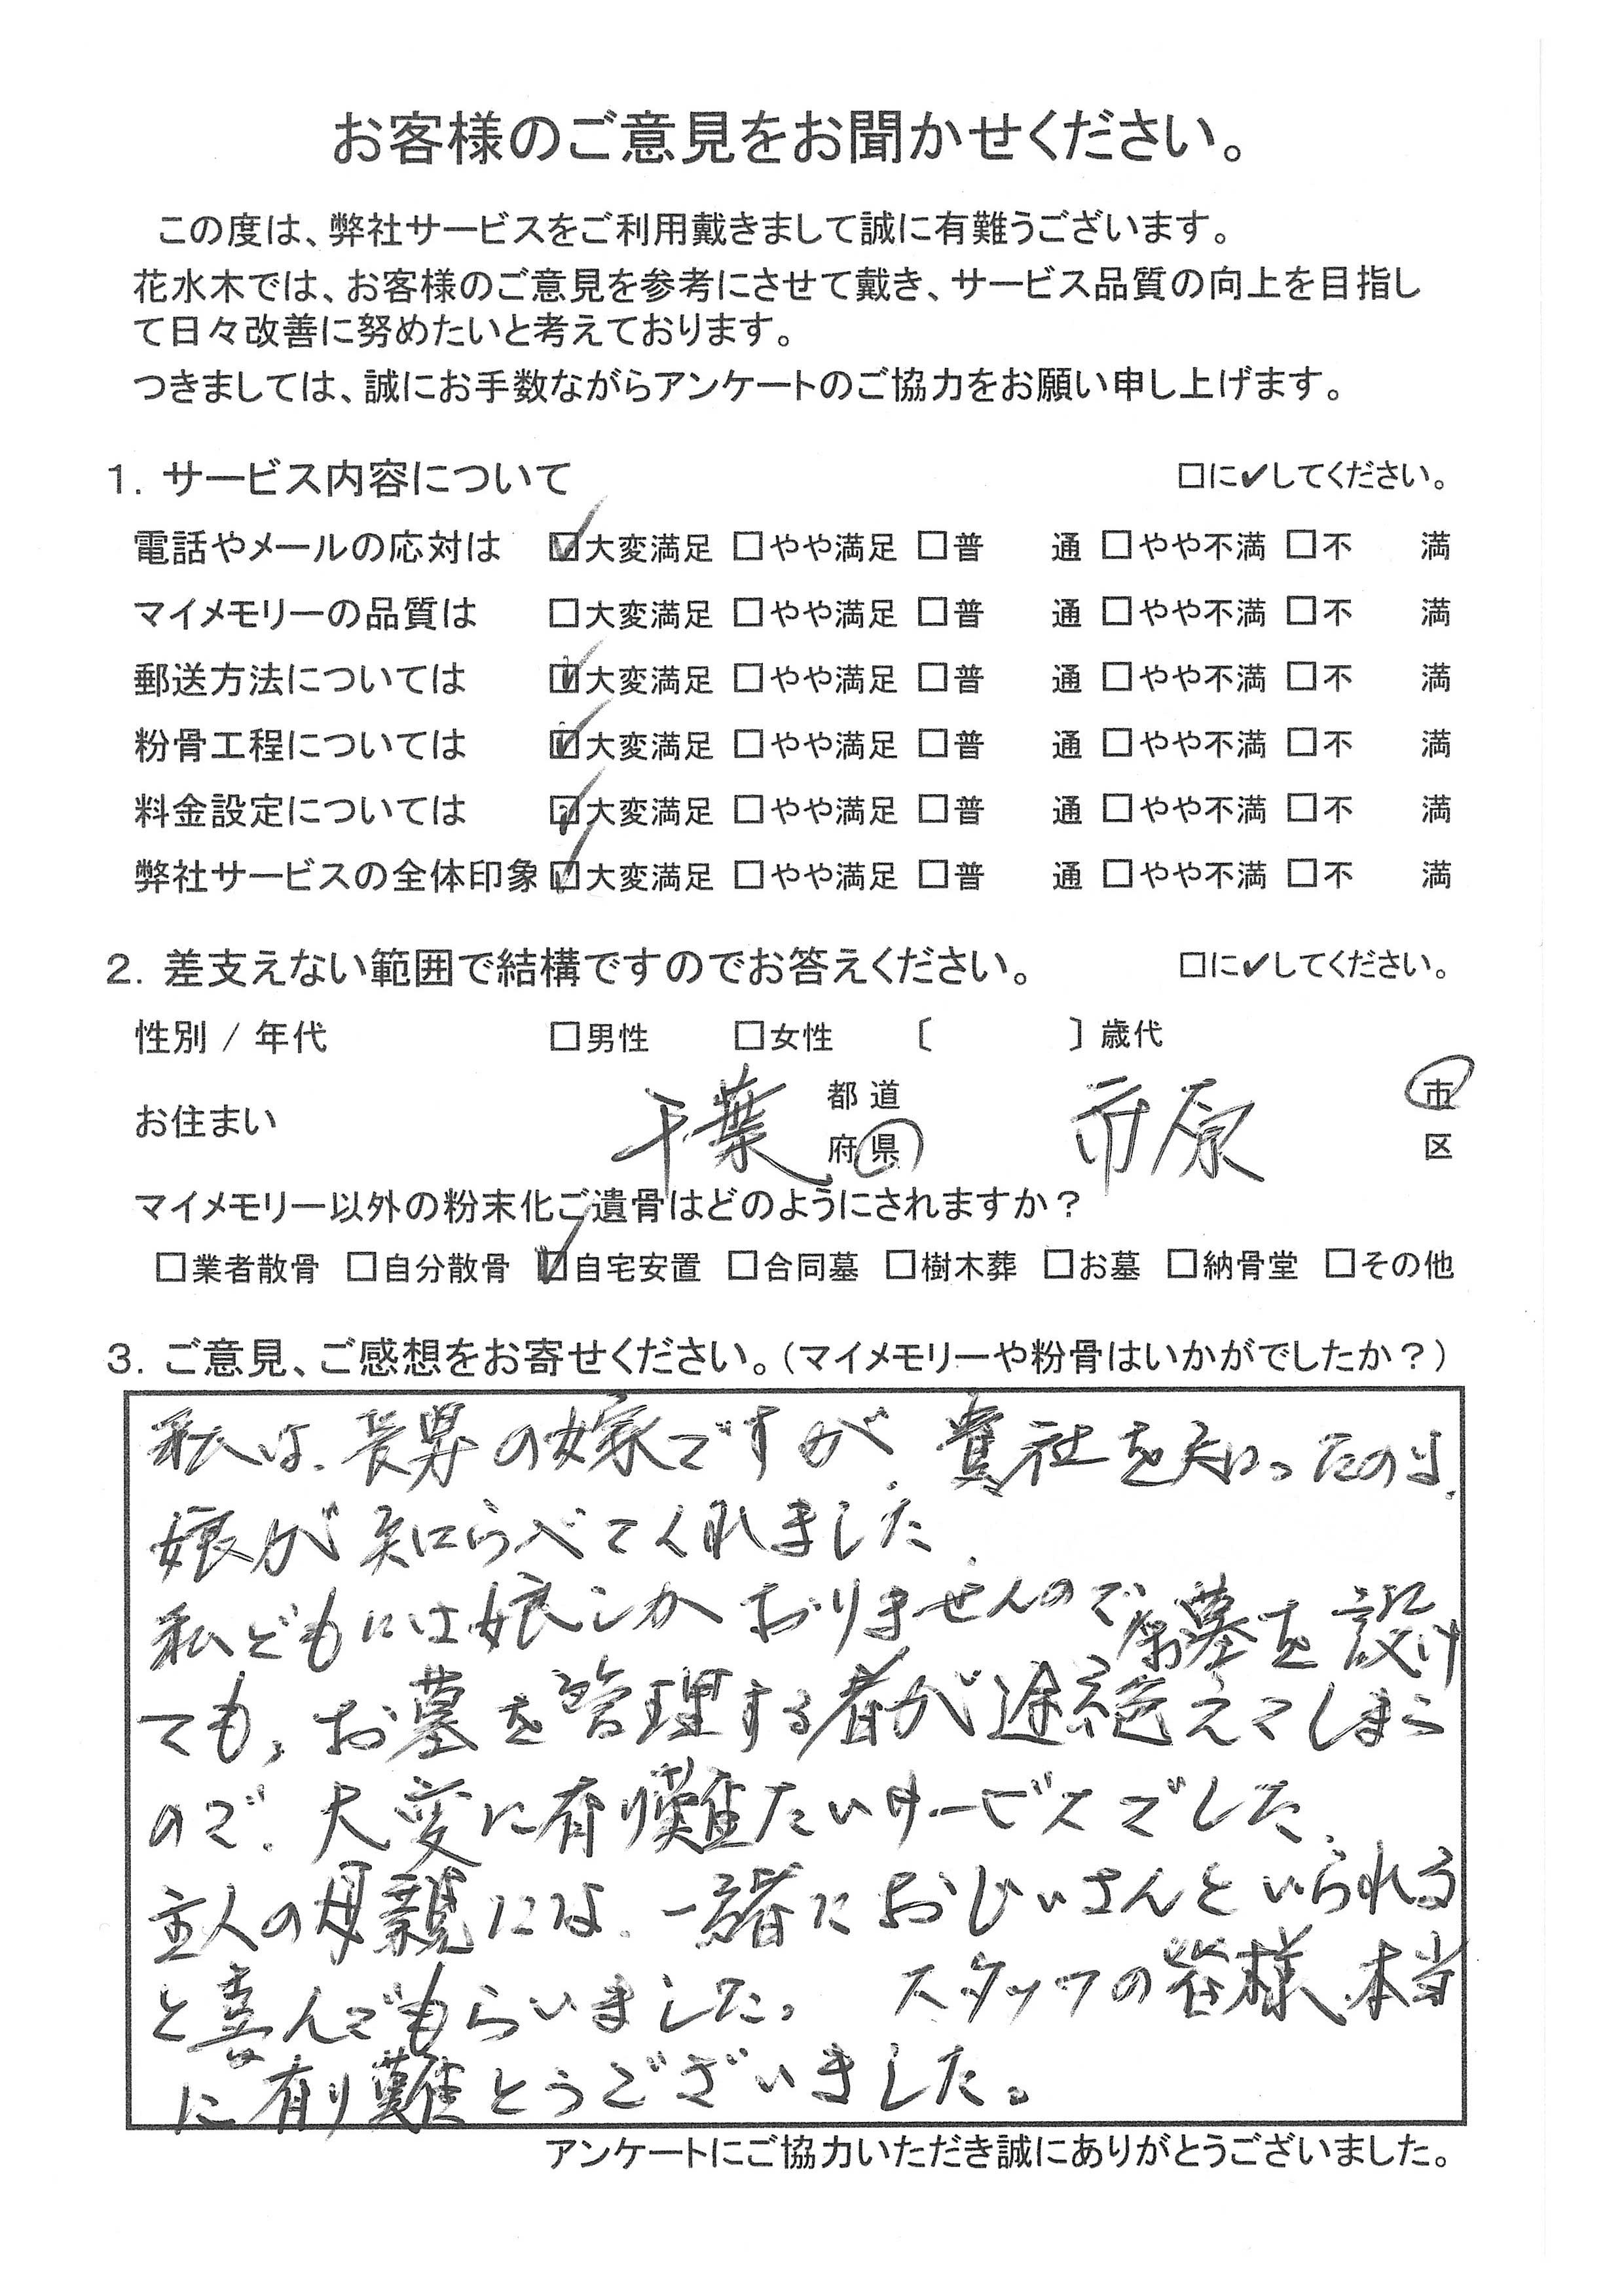 お客様のご意見をお聞かせください。
この度は、弊社サービスをご利用戴きまして誠に有難うございます。
花水木では、お客様のご意見を参考にさせて戴き、サービス品質の向上を目指し
て日々改善に努めたいと考えております。
つきましては、誠にお手数ながらアンケートのご協力をお願い申し上げます。
1. サービス内容について □に✔してください。
電話やメールの応対は ☑大変満足 □やや満足 □普 通 □やや不満 □不 満
マイメモリーの品質は □大変満足 □やや満足 □普 通 □やや不満 □不 満
郵送方法については ☑大変満足 □やや満足 □普 通 □やや不満 □不 満
粉骨工程については ☑大変満足 □やや満足 □普 通 □やや不満 □不 満
料金設定については ☑大変満足 □やや満足 □普 通 □やや不満 □不 満
弊社サービスの全体印象 ☑大変満足 □やや満足 □普 通 □やや不満 □不 満
2. 差支えない範囲で結構ですのでお答えください。 □に✔してください。
性別 / 年代 □男性 □女性 〔 〕歳代
お住まい 千葉 都道府県 市原 市区
マイメモリー以外の粉末化ご遺骨はどのようにされますか？
□業者散骨 □自分散骨 ☑自宅安置 □合同墓 □樹木葬 □お墓 □納骨堂 □その他
3. ご意見、ご感想をお寄せください。（マイメモリーや粉骨はいかがでしたか？）
私は、長男の嫁ですが 貴社を知ったのは、
娘が知らべてくれました。
私どもには娘しかおりませんのでお墓を設け
ても、お墓を管理する者が途絶えてしまう
ので、大変に有り難たいサービスでした。
主人の母親には、一緒におじいさんといられる
と喜んでもらいました。 スタッフの皆様、本当
に有り難とうございました。
アンケートにご協力いただき誠にありがとうございました。